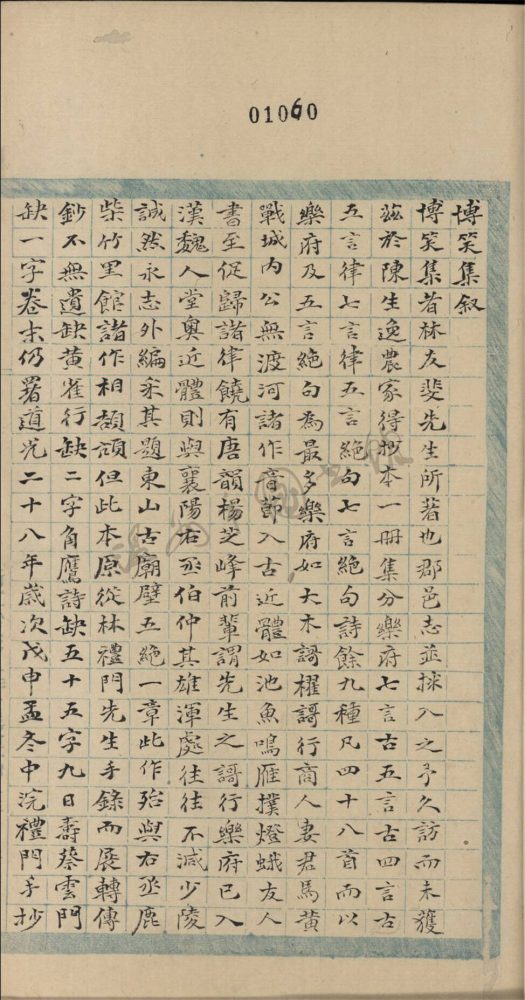 01060
博笑集叙
博笑集者林友斐先生所著也郡邑志並採入之予久訪而未獲
茲於陳生逸農家得抄本一冊集分樂府七言古五言古四言古
五言律七言律五言絕句七言絕句詩餘九種凡四十八首而以
樂府及五言絕句為最多樂府如大木謌櫂謌行商人妻君馬黃
戰城内公無渡河諸作音節入古近體如池魚鳴雁撲燈蛾友人
書至促歸諸律饒有唐韻楊芝峰前輩謂先生之謌行樂府已入
漢魏人堂奧近體則與襄陽右丞伯仲其雄渾處往往不減少陵
誠然永志外編采其題東山古廟壁五絕一章此作殆與右丞鹿
柴竹里館諸作相頡頏但此本原從林禮門先生手錄而展轉傳
鈔不無遺缺黃雀行缺二字角鷹詩缺五十五字九日壽蔡雲門
缺一字卷末仍署道光二十八年歲次戊申孟冬中浣禮門手抄